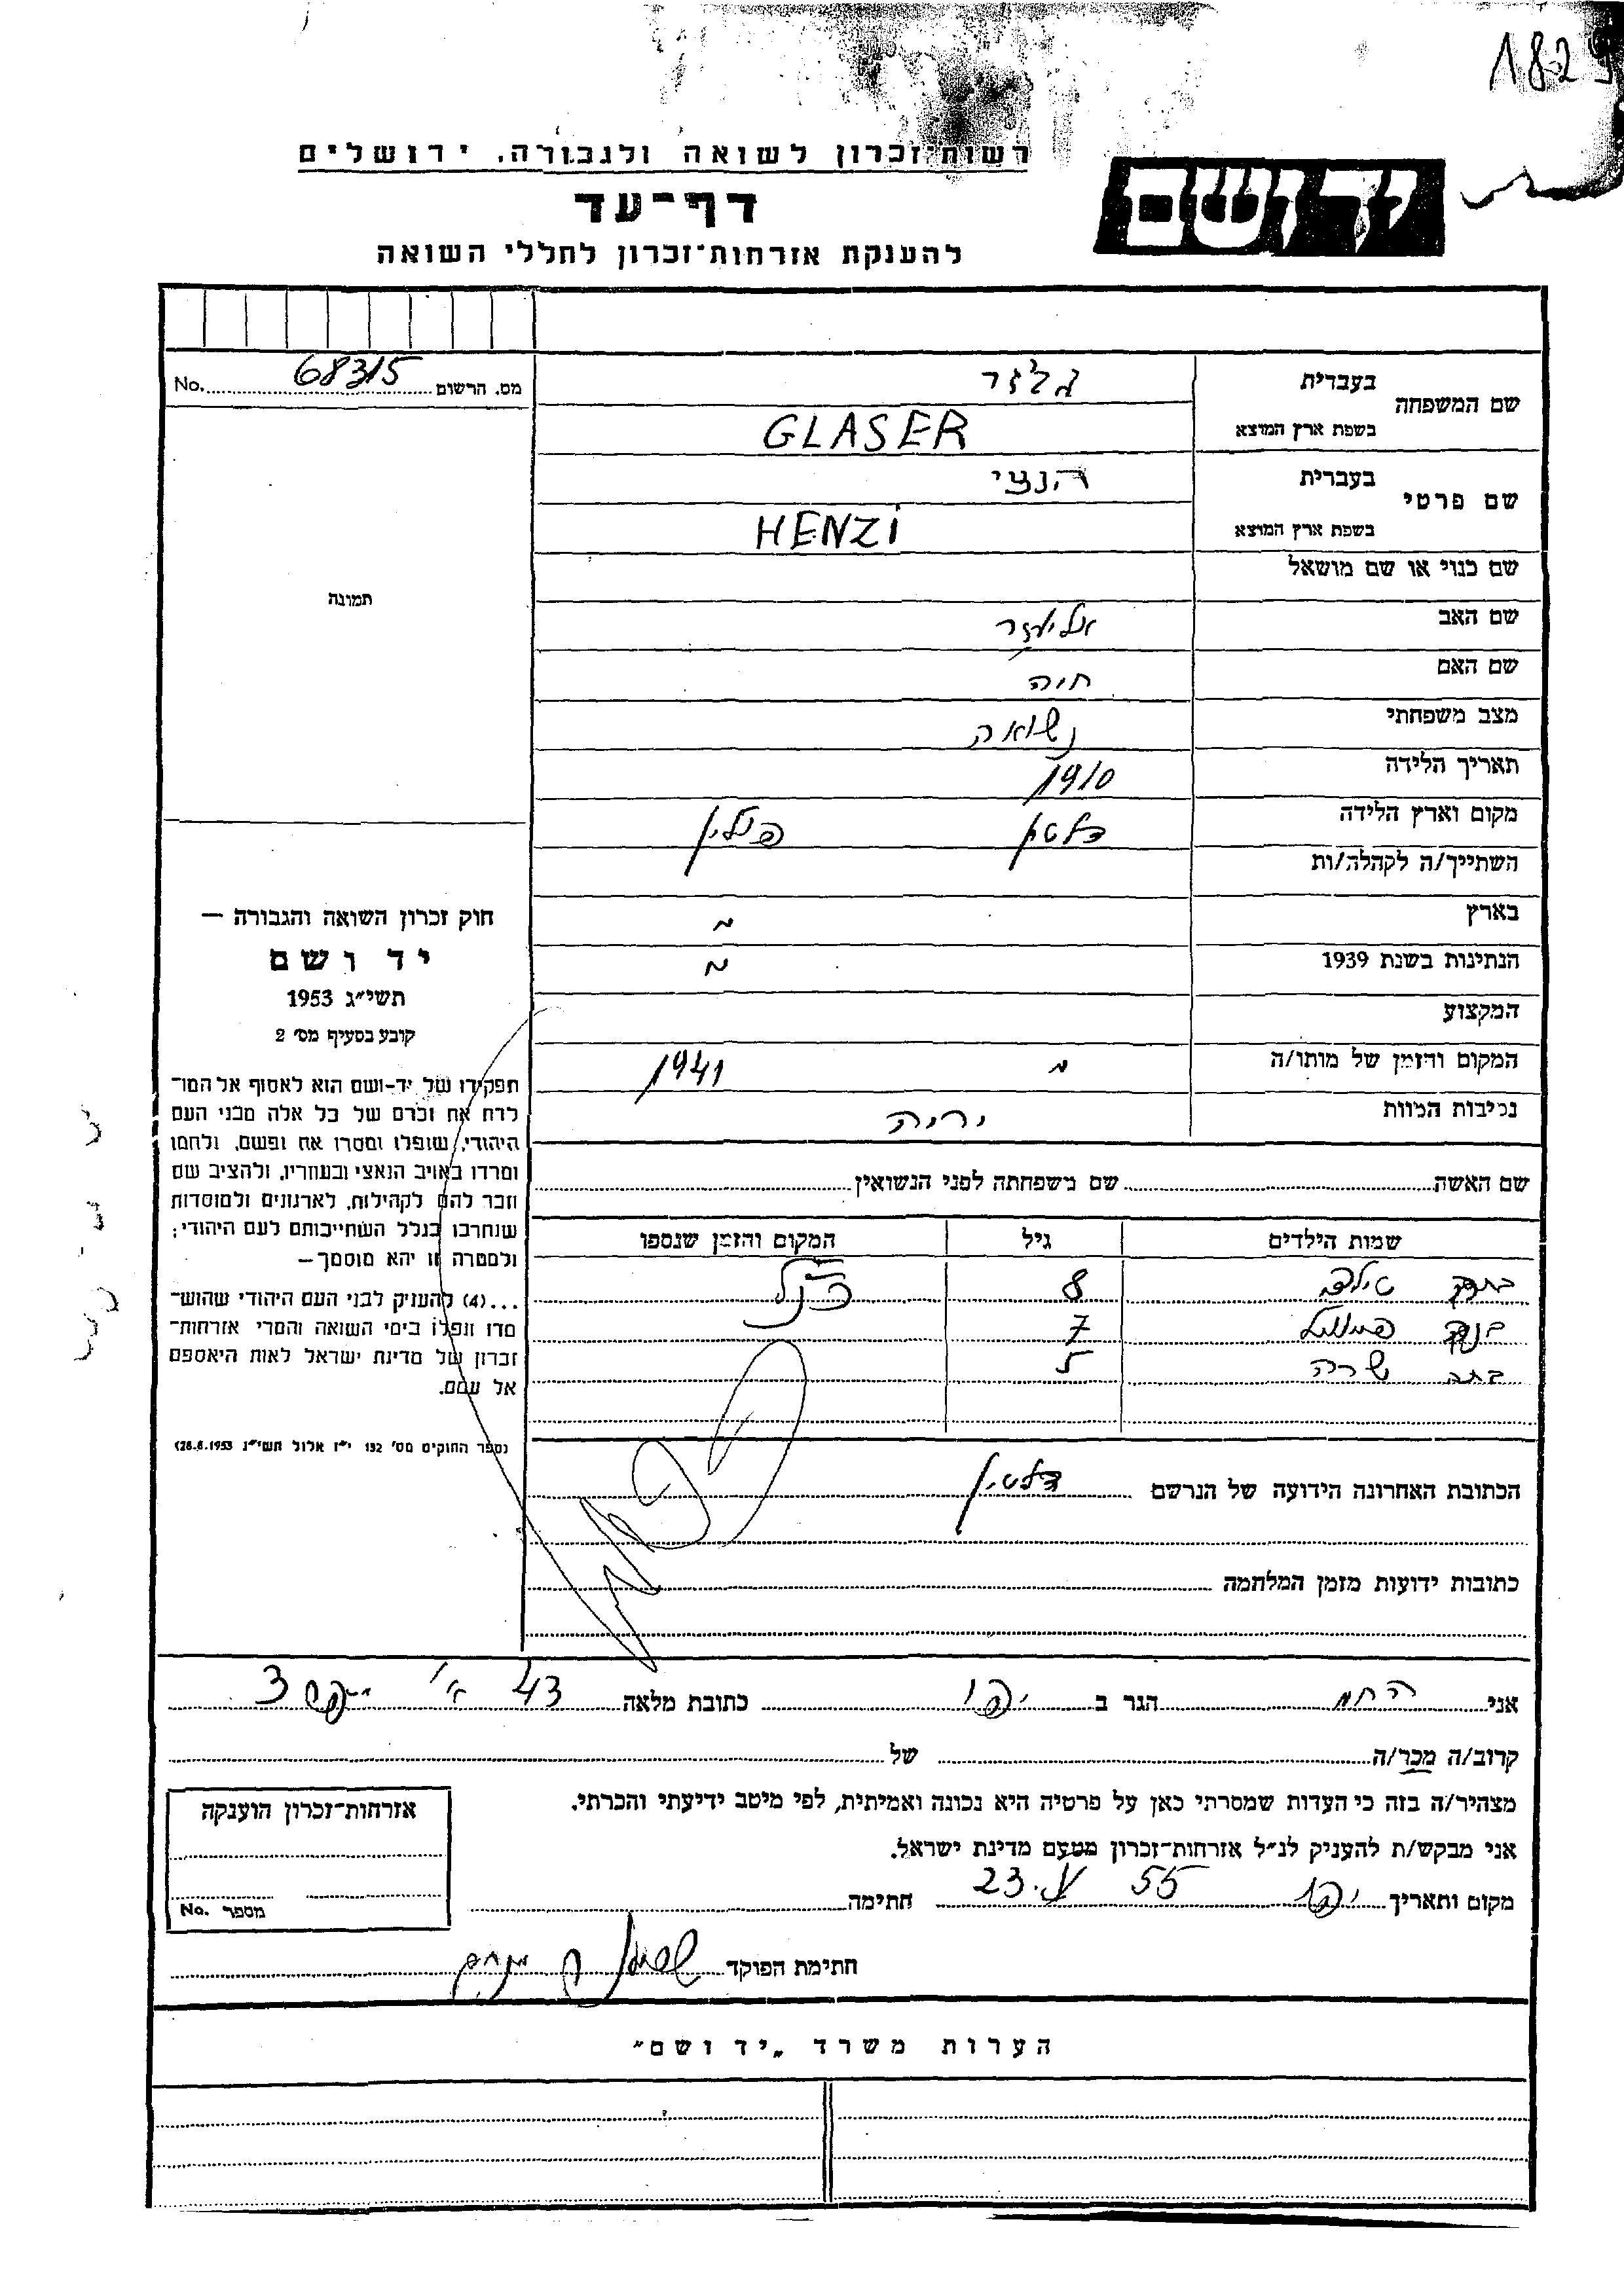 1829
רשות־זכרון לשואה ולגבורה, ירושלים
יד ושם
דף־עד
להענקת אזרחות־זכרון לחללי השואה
מס. הרשום 68315 No.
שם המשפחה
בעברית גלזר
בשפת ארץ המוצא GLASER
שם פרטי
בעברית הנצי
בשפת ארץ המוצא HENZI
שם כנוי או שם מושאל
תמונה
שם האב אליעזר
שם האם חיה
מצב משפחתי נשואה
תאריך הלידה 1910
מקום וארץ הלידה דלטין פולין
השתייך/ה לקהלה/ות
בארץ "
הנתינות בשנת 1939 "
המקצוע
המקום והזמן של מותו/ה " 1941
נסיבות המוות יריה
חוק זכרון השואה והגבורה —
יד ושם
תשי״ג 1953
קובע בסעיף מס׳ 2
תפקידו של יד-ושם הוא לאסוף אל המו־
לדת את זכרם של כל אלה מבני העם
היהודי, שנפלו ומסרו את נפשם, נלחמו
ומרדו באויב הנאצי ובעוזריו, ולהציב שם
וזכר להם לקהילות, לארגונים ולמוסדות
שנחרבו בגלל השתייכותם לעם היהודי;
ולמטרה זו יהא מוסמך —
...(4) להעניק לבני העם היהודי שהוש־
מדו ונפלו בימי השואה והמרי אזרחות־
זכרון של מדינת ישראל לאות היאספם
אל עמם.
(ספר החוקים מס׳ 132 י״ז אלול תשי״ג 28.8.1953)
שם האשה שם משפחתה לפני הנשואין
שמות הילדים גיל המקום והזמן שנספו
בתה 8 כנ״ל
בנה שמואל 7
בתה שרה 5
הכתובת האחרונה הידועה של הנרשם דלטין
כתובות ידועות מזמן המלחמה
אני הגר ב יפו כתובת מלאה 43 3
קרוב/ה מכר/ה של
מצהיר/ה בזה כי העדות שמסרתי כאן על פרטיה היא נכונה ואמיתית, לפי מיטב ידיעתי והכרתי.
אני מבקש/ת להעניק לנ״ל אזרחות־זכרון מטעם מדינת ישראל.
מקום ותאריך יפו 23. 55 חתימה
חתימת הפוקד
אזרחות־זכרון הוענקה
מספר No.
הערות משרד „יד ושם״